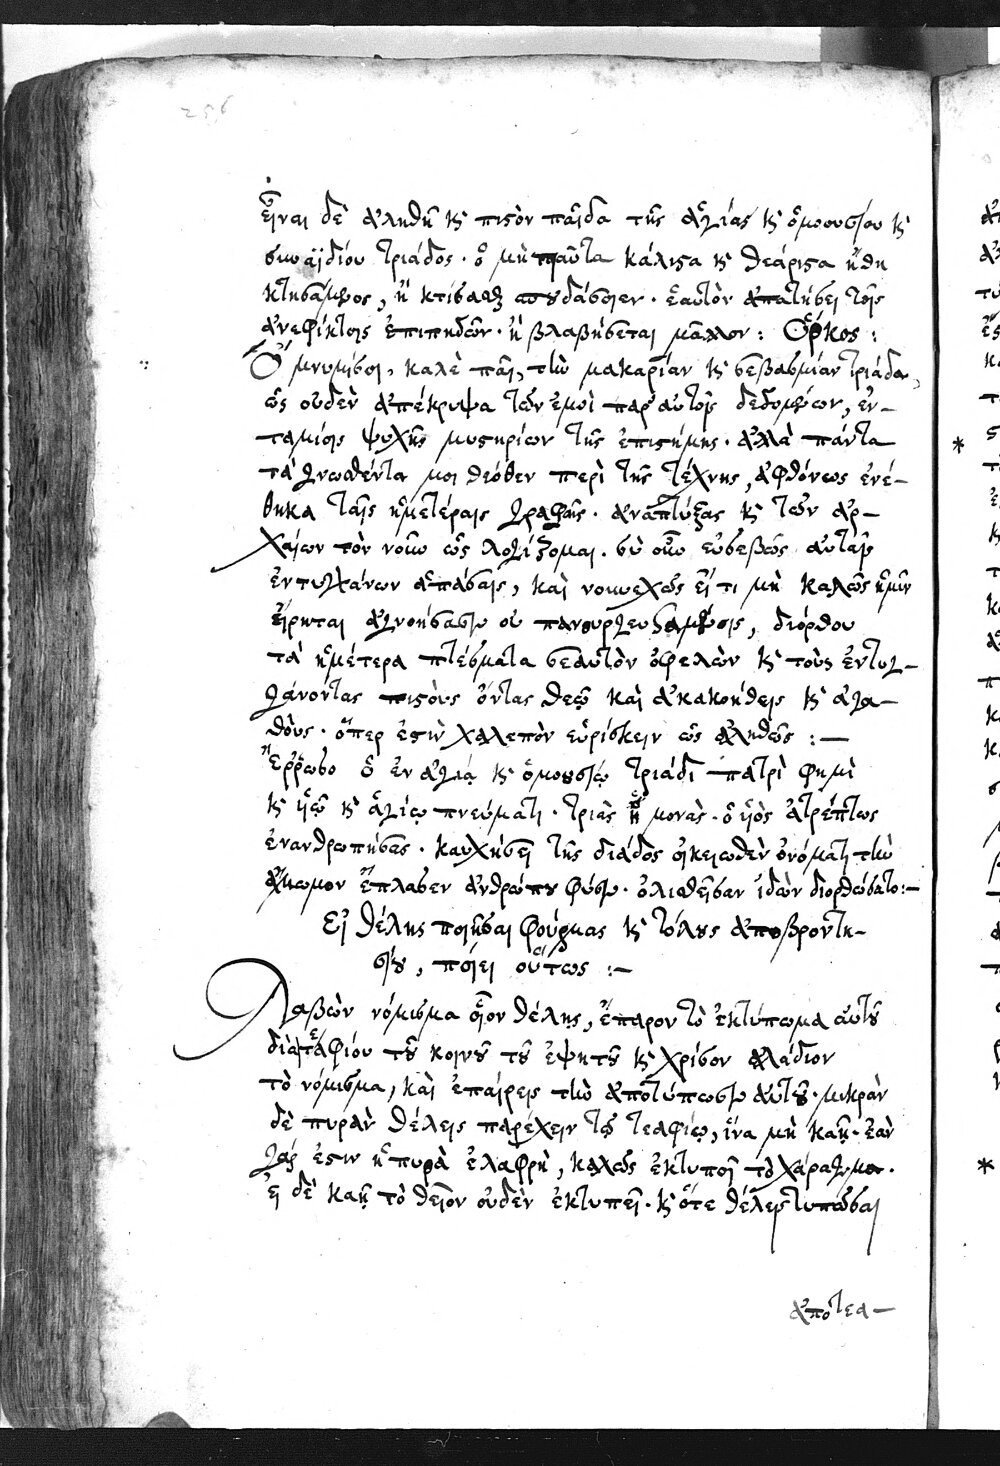 256
εἶναι δὲ ἀληθῆ κ̀ πιστὸν παῖδα τῆς ἁγίας κ̀ ὁμοουσίου κ̀
συναϊδίου τριάδος. ὁ μὴ ταῦτα κάλιστα κ̀ θεάριστα ἤθη
κτησάμενος, ἢ κτίσασθαι σπουδάσειεν. ἑαυτὸν ἀπατήσει τοῖς
ἀνεφίκτοις ἐπιπηδῶν. ἢ βλαβήσεται μᾶλλον: Ὅρκος:
Ὄμνυμίσοι, καλὲ παῖ, τὴν μακαρίαν κ̀ σεβασμίαν τριάδα,
ὡς οὐδὲν ἀπέκρυψα τῶν ἐμοὶ παρ' αὐτοῖς δεδομένων, ἐν–
ταμίοις ψυχῆς μυστηρίων τῆς ἐπιστήμης. ἀλλὰ πάντα
τὰ γνωσθέντα μοι θεόθεν περὶ τῆς τέχνης, ἀφθόνως ἐνέ–
θηκα ταῖς ἡμετέραις γραφαῖς. ἀναπτύξας κ̀ τῶν ἀρ–
χαίων τὸν νοῦν ὡς λογίζομαι. σὺ οὖν εὐσεβῶς αὐταῖς
ἐντυγχάνων ἁπάσαις, καὶ νουνεχῶς εἴ τι μὴ καλῶς ἡμῖν
εἴρηται ἀγνοήσασιν οὐ πανουργευσαμένοις, διόρθου
τὰ ἡμέτερα πταίσματα σεαυτὸν ὀφελῶν κ̀ τοὺς ἐντυγ–
χάνοντας πιστοὺς ὄντας θεῷ καὶ ἀκακοήθεις κ̀ ἀγα–
θοὺς. ὅπερ ἐστὶν χαλεπὸν εὑρίσκειν ὡς ἀληθῶς :—
Ἔρρωσο ὁ ἐν ἁγίᾳ κ̀ ὁμοουσίῳ τριάδι πατρὶ φημὶ
κ̀ υἱῷ κ̀ ἁγίῳ πνεύματι. τριὰς ἡ μονὰς. ὁ υἱὸς ἀτρέπτως
ἐνανθρωπήσας. καυχήσει τῆς διάδος οἰκειωθὲν ὀνόματι τὴν
ἄμωμον ἔπλασεν ἀνθρώπου φύσιν. ὀλισθεῖσαν ἰδὼν διορθώσατο:–
Εἰ θέλης ποιῆσαι φούρμας κ̀ τύλους ἀποβροντη–
σίου, ποίει οὕτως :–
Λαβὼν νόμισμα οἷον θέλης, ἔπαρον τὸ ἐκτύπωμα αὐτοῦ
διὰ τεαφίου τοῦ κοινοῦ τοῦ ἑψητοῦ κ̀ χρίσον ἐλάδιον
τὸ νόμισμα, καὶ ἐπαίρεις τὴν ἀποτύπωσιν αὐτοῦ. μικρὰν
δὲ πυρὰν θέλεις παρέχειν τῷ τεαφίῳ, ἵνα μὴ καῇ. ἐὰν
γάρ ἐστιν ἡ πυρὰ ἐλαφρὴ, καλῶς ἐκτυποῖ τὸ χάραγμα.
εἰ δὲ καῇ τὸ θεῖον οὐδὲν ἐκτυπεῖ. κ̀ ὅτε θέλεις τυπῶσαι
ἀπὸ τεα–